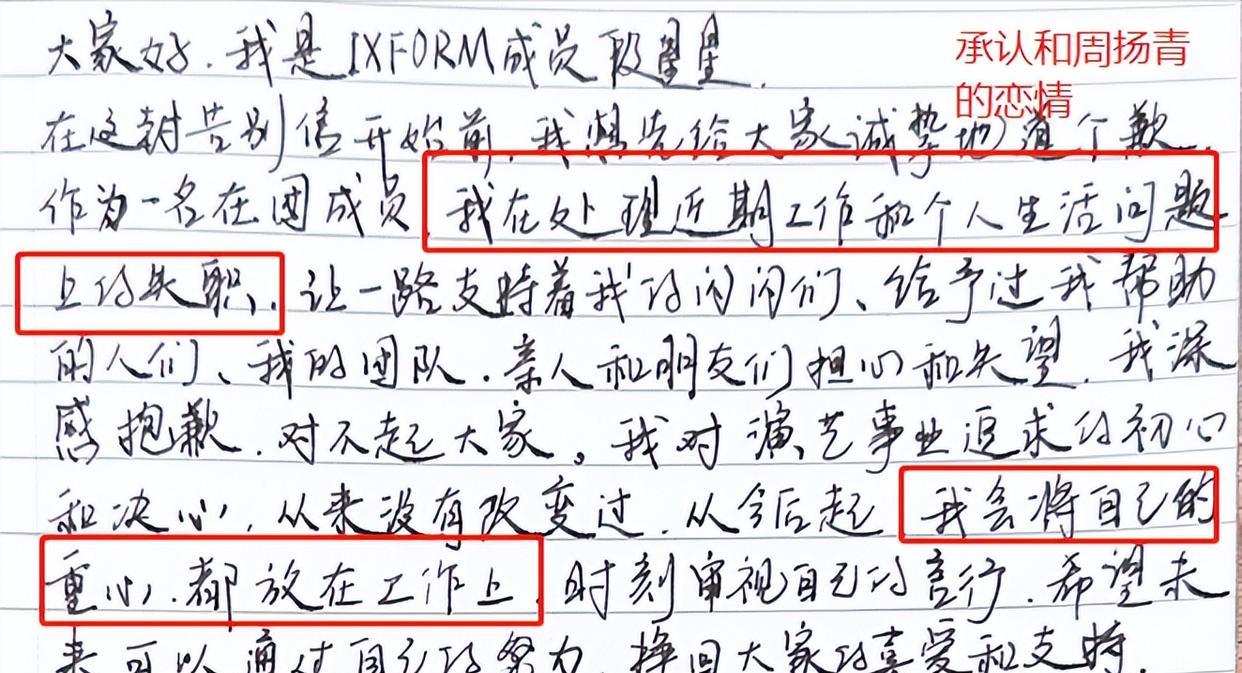 大家好.我是IXFORM成员段星星.
承认和周扬青
的恋情
在这封告别信开始前,我想先给大家诚挚地道个歉.
作为一名在团成员,我在处理近期工作和个人生活问题
上的失职,让一路支持着我的闪闪们、给予过我帮助
的人们、我的团队.亲人和朋友们担心和失望.我深
感抱歉.对不起大家。我对演艺事业追求的初心
和决心,从来没有改变过.从今后起,我会将自己的
重心.都放在工作上,时刻审视自己的言行.希望未
来可以通过自己的努力,换回大家的喜爱和支持.